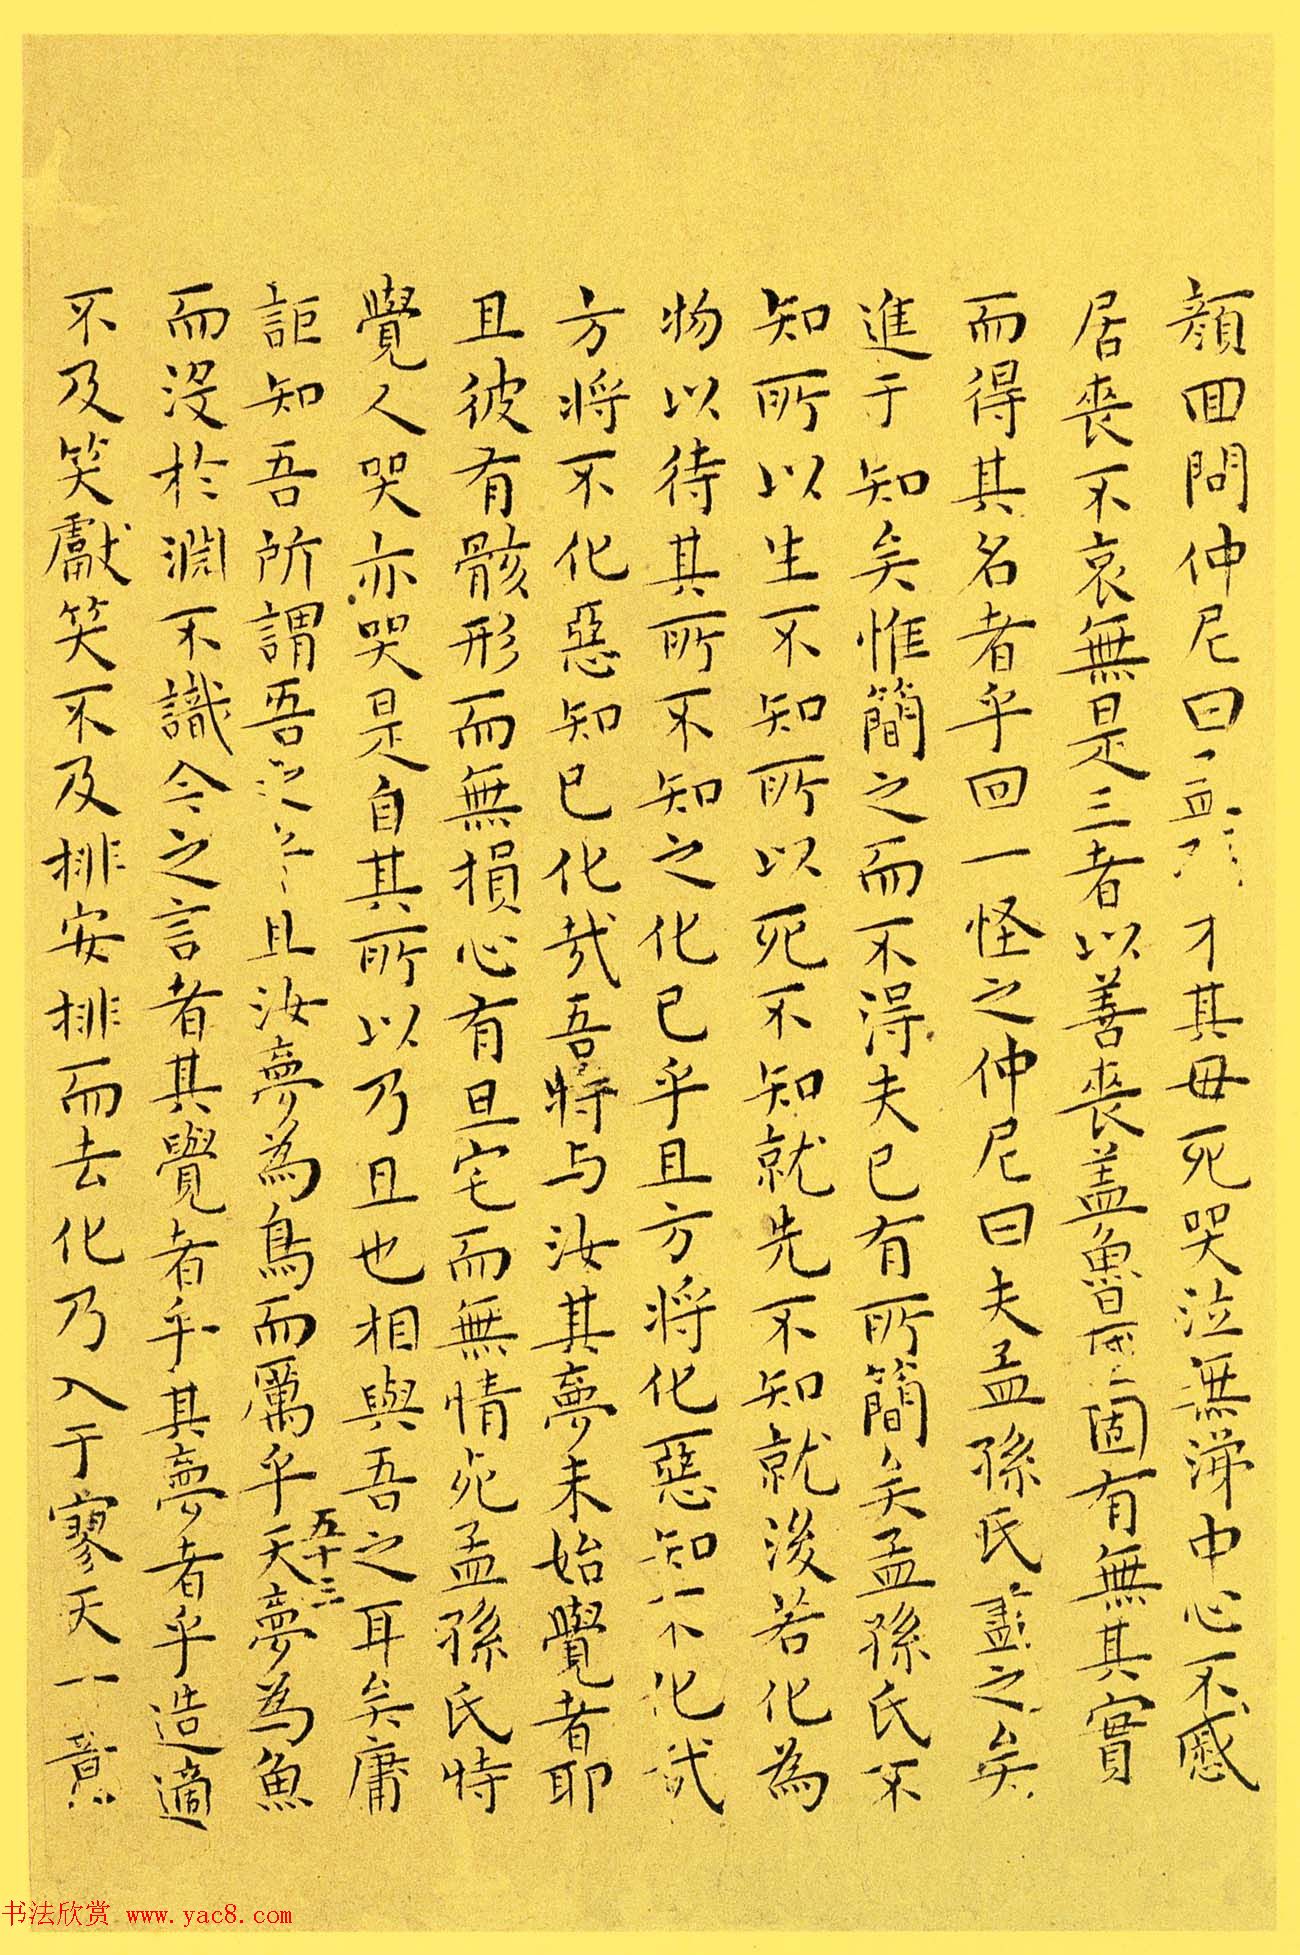 顔回問仲尼曰孟孫才其母死哭泣無涕中心不慼
居喪不哀無是三者以善喪蓋魯國固有無其實
而得其名者乎回一怪之仲尼曰夫孟孫氏盡之矣
進于知矣惟簡之而不得夫已有所簡矣孟孫氏不
知所以生不知所以死不知就先不知就後若化為
物以待其所不知之化已乎且方將化惡知不化哉
方將不化惡知已化哉吾將与汝其夢未始覺者耶
且彼有骸形而無損心有旦宅而無情死孟孫氏特
覺人哭亦哭是自其所以乃且也相與吾之耳矣庸
詎知吾所謂吾之乎且汝夢為鳥而厲乎天夢為魚
五十三
而沒於淵不識今之言者其覺者乎其夢者乎造適
不及笑獻笑不及排安排而去化乃入于寥天一意
书法欣赏 www.yac8.com